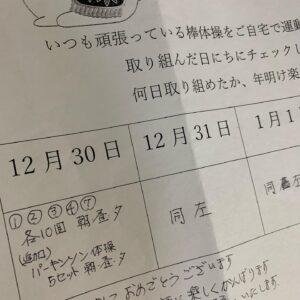 いつも頑張っている棒体操をご自宅で運動
取り組んだ日にちにチェックし
何日取り組めたか、年明け楽
12月30日
12月31日
1月1
①②③④⑦
各10回 朝昼夕
(追加)
パーキンソン体操
5セット 朝昼夕
同左
おめでとうございます
楽しくがんばります
いたします